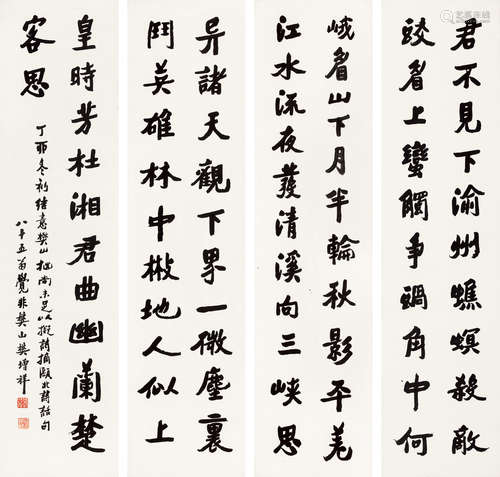 君不見下渝州蟭螟殺敵
蚊眉上蠻觸爭蝸角中何
峨眉山下月半輪秋影平羌
江水流夜發清溪向三峽思
異諸天觀下界一微塵裏
鬥英雄林中散地人似上
皇時芳杜湘君曲幽蘭楚
客思
丁卯冬初 樊山 尚未足以 詩摘 北詩話句
八十五翁覺非樊山樊增祥